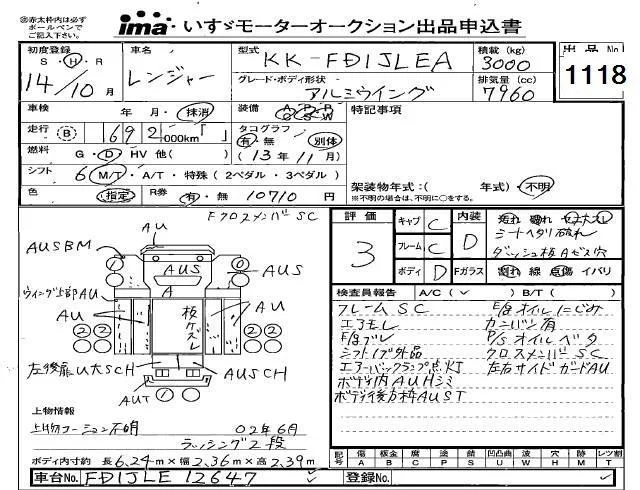 ㊟赤太枠内は必ず
ボールペンで
ご記入下さい。
ima いすゞモーターオークション出品申込書
出品No.
1118
初度登録
S・H・R
14/10月
車名
レンジャー
型式
KK-FD1JLEA
積載(kg)
3000
グレード・ボディ形状
アルミウイング
排気量(cc)
7960
車検
年 月・抹消
装備
A/C P/S P/W S/R
特記事項
走行 B 692,000km「 」
タコグラフ
有・無 別体
(13年11月)
燃料
G・D・HV 他( )
シフト
6 M/T・A/T・特殊(2ペダル・3ペダル)
架装物年式:( 年式)・不明
※不明の場合は、不明に○をする。
色
(指定)
R券
有・無 10710円
Fクロスメンバ SC
AU
AUSBM
AUS
AUS
A
ウイング上部AU
AU
AU
板ケズレ
左後扉 U大SCH
AUSCH
AUT
評価
3
キャブ C
フレーム C
ボディ D
内装
D
汚れ 破れ セコ大スレ
シートヘタリ 破れ
ダッシュ板Aビス穴
Fガラス
割れ 線 点傷 イバリ
検査員報告 A/C(✓) B/T( )
フレームSC
エアモレ
E/gブレ
シフトノブ外品
エアーバックランプ点灯
ボディ内AUHシミ
ボディ後方枠AUST
E/gオイルにじみ
カンバン有
P/Sオイルベタ
クロスメンバSC
左右サイドガードAU
上物情報
上物コーション不明
02年6月
ラッシング2段
ボディ内寸約 長6.24m×幅2.36m×高2.39m
記号
傷 板金 腐 塗 錆 凹凸曲 波 穴 跡 レツ割
A B C P S U W H M T
車台No. FD1JLE 12647
登録No.